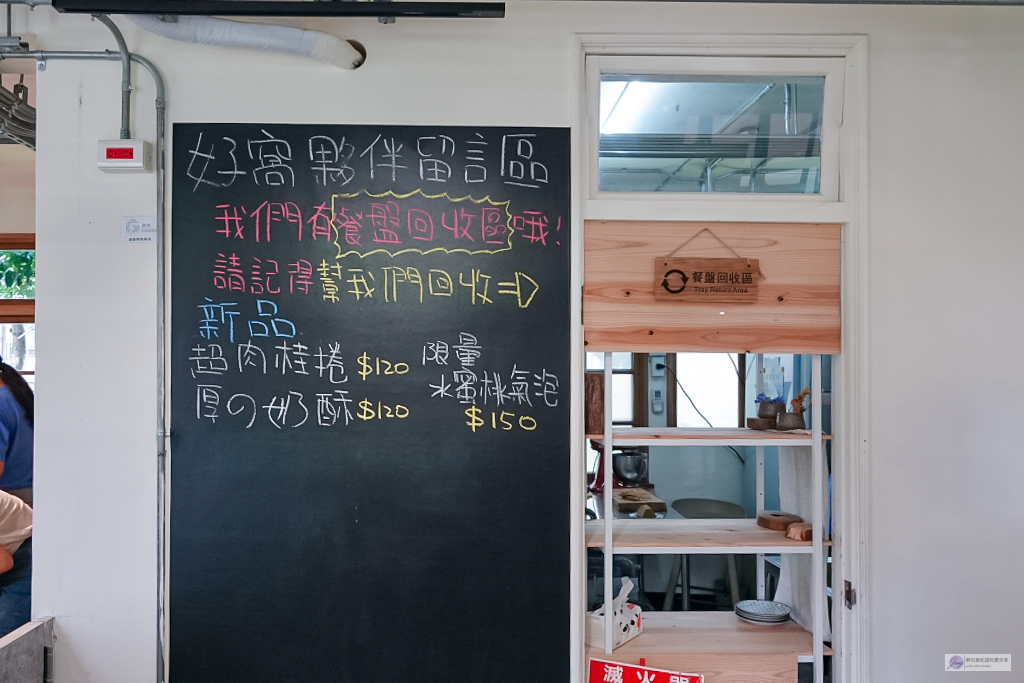 好窩夥伴留言區
我們有餐盤回收區哦!
請記得幫我們回收⇒
新品
超肉桂捲 $120
厚の奶酥 $120
限量
水蜜桃氣泡
$150
餐盤回收區
Tray Return Area
滅火器